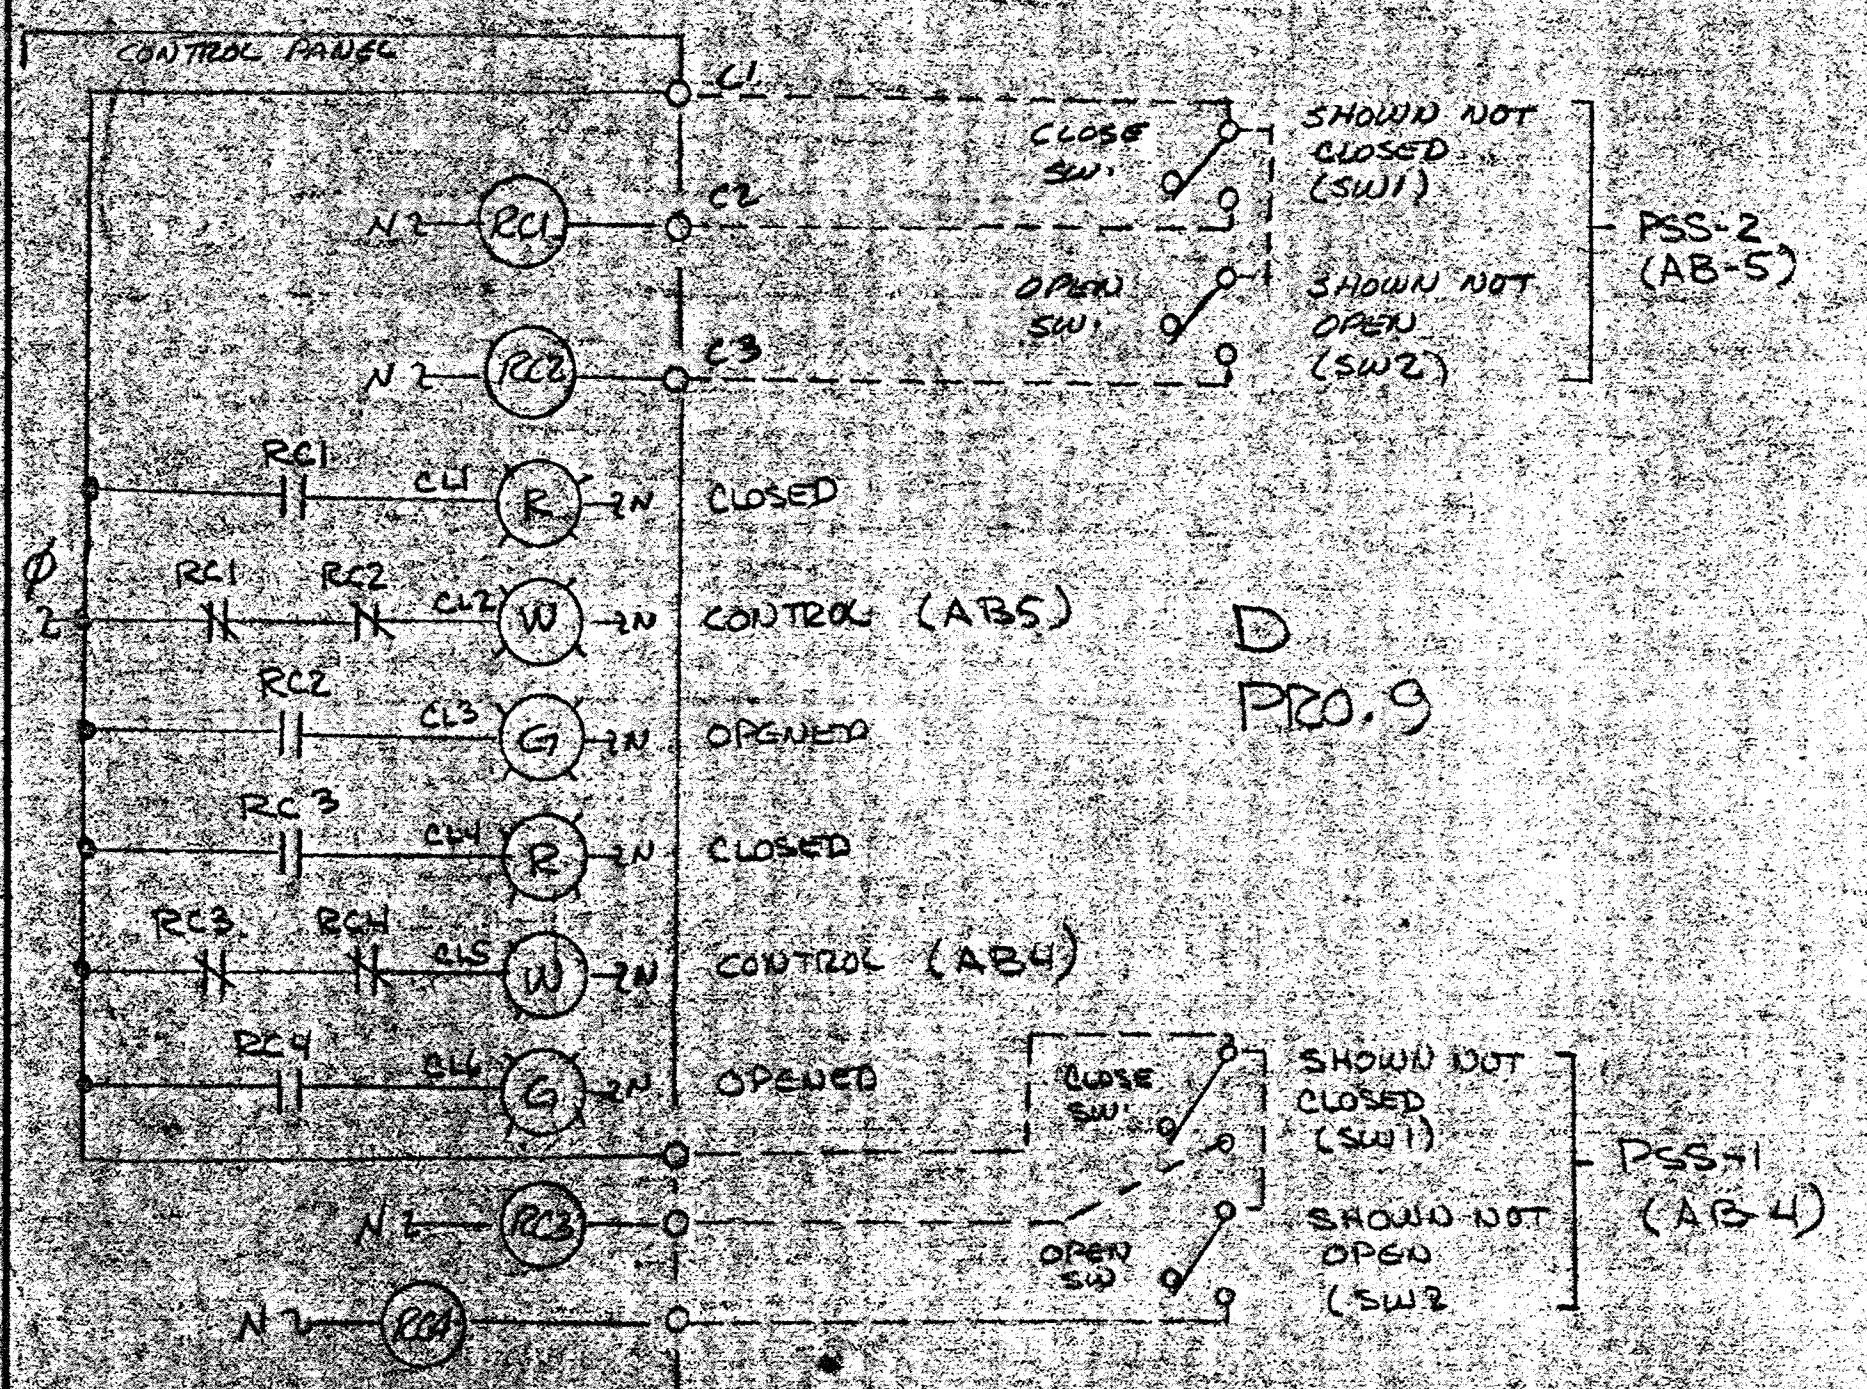 CONTROL PANEL
C1
CLOSE
SW.
SHOWN NOT
CLOSED
(SW1)
C2
N RC1
PSS-2
(AB-5)
OPEN
SW.
SHOWN NOT
OPEN
(SW2)
C3
N RC2
RC1
CL1 R N CLOSED
Ø
RC1 RC2
CL2 W N CONTROL (AB5)
D
PRO. 9
RC2
CL3 G N OPENED
RC3
CL4 R N CLOSED
RC3 RC4
CL5 W N CONTROL (AB4)
RC4
CL6 G N OPENED
CLOSE
SW.
SHOWN NOT
CLOSED
(SW1)
PSS-1
(AB-4)
N RC3
OPEN
SW
SHOWN NOT
OPEN
(SW2
N RC4